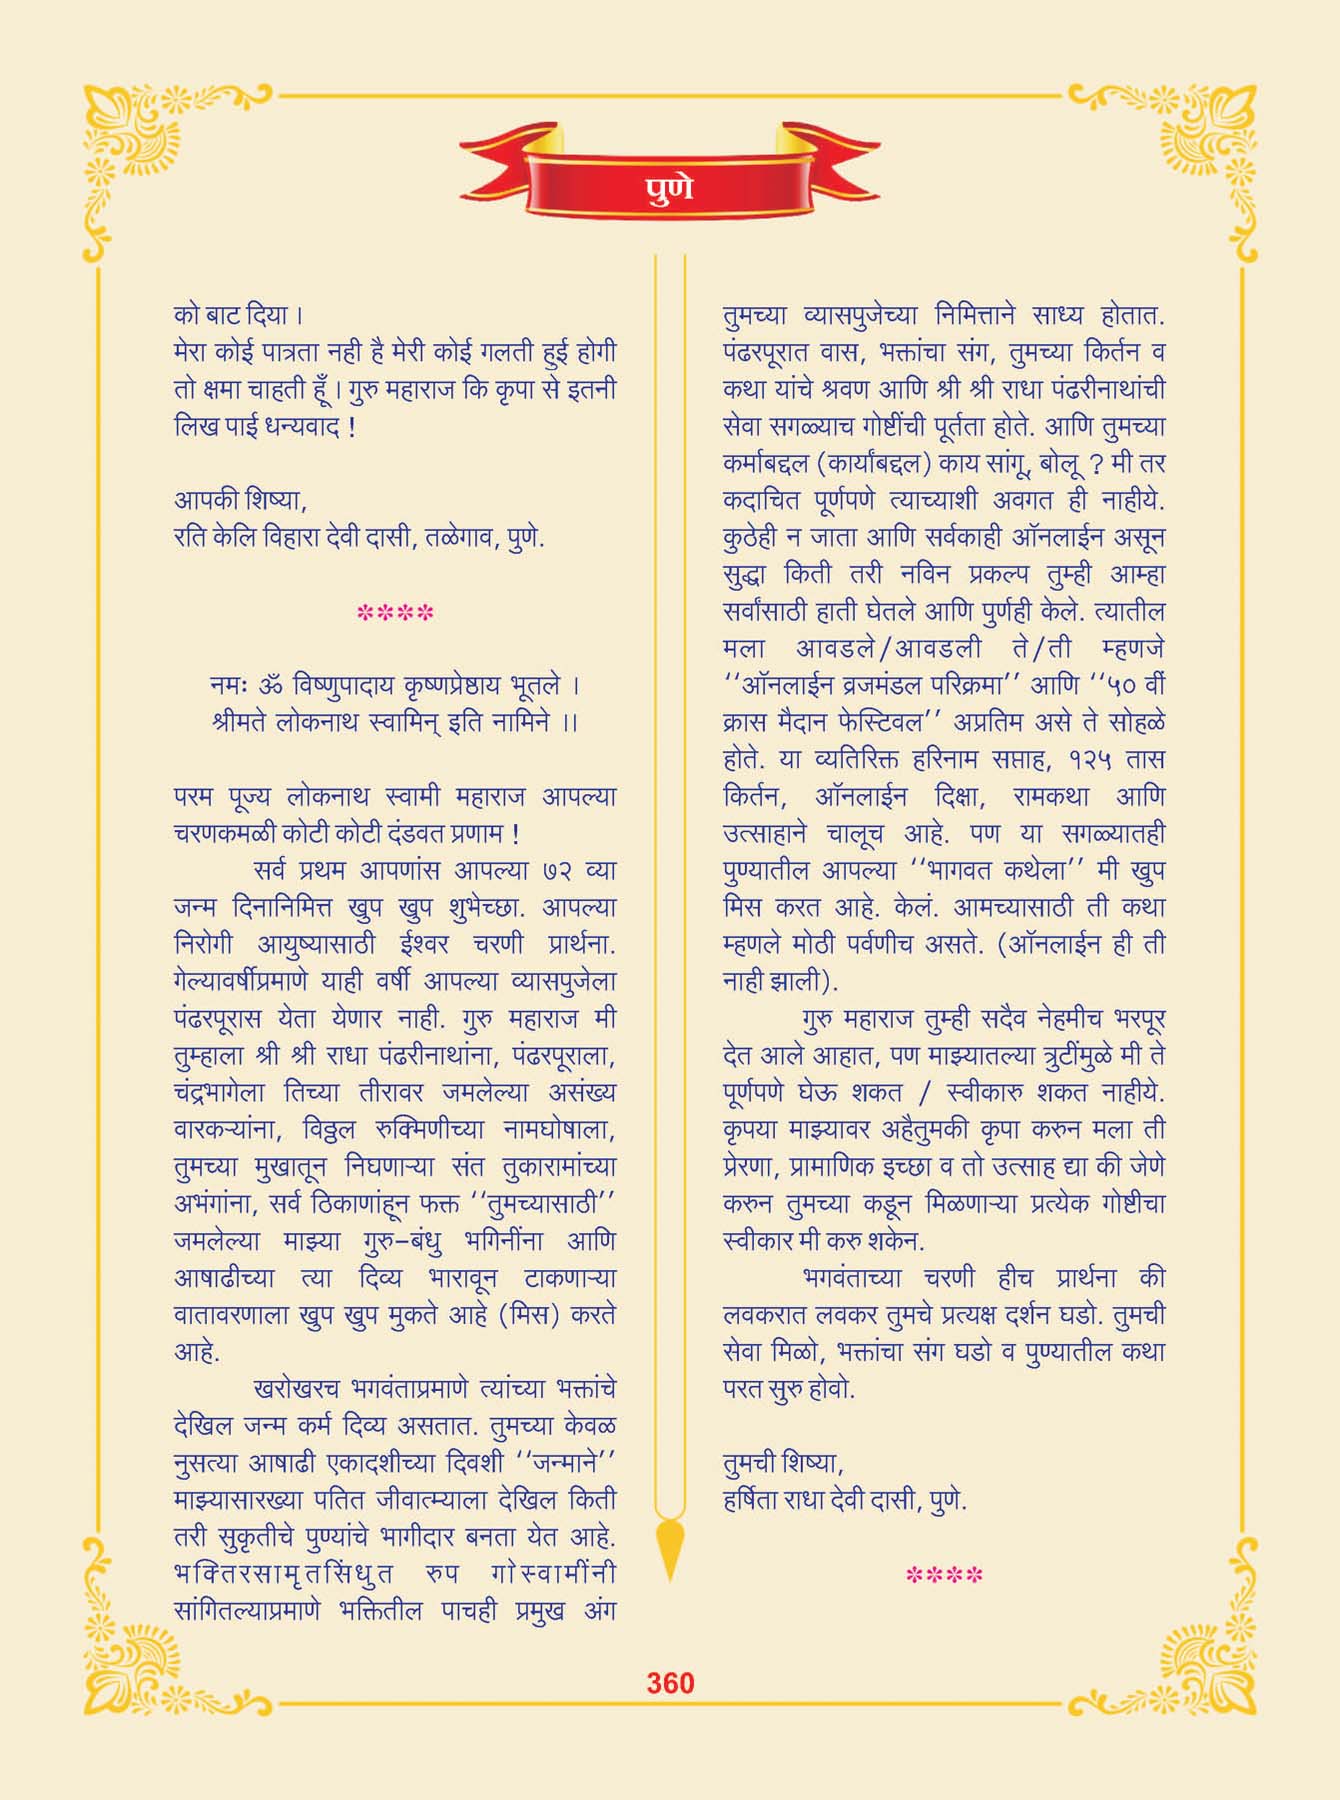 पुणे
को बाट दिया ।
मेरा कोई पात्रता नही है मेरी कोई गलती हुई होगी
तो क्षमा चाहती हूँ । गुरु महाराज कि कृपा से इतनी
लिख पाई धन्यवाद !
आपकी शिष्या,
रति केलि विहारा देवी दासी, तळेगाव, पुणे.
****
नमः ॐ विष्णुपादाय कृष्णप्रेष्ठाय भूतले ।
श्रीमते लोकनाथ स्वामिन् इति नामिने ।।
परम पूज्य लोकनाथ स्वामी महाराज आपल्या
चरणकमळी कोटी कोटी दंडवत प्रणाम !
सर्व प्रथम आपणांस आपल्या ७२ व्या
जन्म दिनानिमित्त खुप खुप शुभेच्छा. आपल्या
निरोगी आयुष्यासाठी ईश्वर चरणी प्रार्थना.
गेल्यावर्षीप्रमाणे याही वर्षी आपल्या व्यासपुजेला
पंढरपूरास येता येणार नाही. गुरु महाराज मी
तुम्हाला श्री श्री राधा पंढरीनाथांना, पंढरपूराला,
चंद्रभागेला तिच्या तीरावर जमलेल्या असंख्य
वारकऱ्यांना, विठ्ठल रुक्मिणीच्या नामघोषाला,
तुमच्या मुखातून निघणाऱ्या संत तुकारामांच्या
अभंगांना, सर्व ठिकाणांहून फक्त ‘‘तुमच्यासाठी’’
जमलेल्या माझ्या गुरु–बंधु भगिनींना आणि
आषाढीच्या त्या दिव्य भारावून टाकणाऱ्या
वातावरणाला खुप खुप मुकते आहे (मिस) करते
आहे.
खरोखरच भगवंताप्रमाणे त्यांच्या भक्तांचे
देखिल जन्म कर्म दिव्य असतात. तुमच्या केवळ
नुसत्या आषाढी एकादशीच्या दिवशी ‘‘जन्माने’’
माझ्यासारख्या पतित जीवात्म्याला देखिल किती
तरी सुकृतीचे पुण्यांचे भागीदार बनता येत आहे.
भक्तिरसामृतसिंधुत रुप गोस्वामींनी
सांगितल्याप्रमाणे भक्तितील पाचही प्रमुख अंग
तुमच्या व्यासपुजेच्या निमित्ताने साध्य होतात.
पंढरपूरात वास, भक्तांचा संग, तुमच्या किर्तन व
कथा यांचे श्रवण आणि श्री श्री राधा पंढरीनाथांची
सेवा सगळ्याच गोष्टींची पूर्तता होते. आणि तुमच्या
कर्माबद्दल (कार्यांबद्दल) काय सांगू, बोलू ? मी तर
कदाचित पूर्णपणे त्याच्याशी अवगत ही नाहीये.
कुठेही न जाता आणि सर्वकाही ऑनलाईन असून
सुद्धा किती तरी नविन प्रकल्प तुम्ही आम्हा
सर्वांसाठी हाती घेतले आणि पुर्णही केले. त्यातील
मला आवडले/आवडली ते/ती म्हणजे
‘‘ऑनलाईन व्रजमंडल परिक्रमा’’ आणि ‘‘५० वीं
क्रास मैदान फेस्टिवल’’ अप्रतिम असे ते सोहळे
होते. या व्यतिरिक्त हरिनाम सप्ताह, १२५ तास
किर्तन, ऑनलाईन दिक्षा, रामकथा आणि
उत्साहाने चालूच आहे. पण या सगळ्यातही
पुण्यातील आपल्या ‘‘भागवत कथेला’’ मी खुप
मिस करत आहे. केलं. आमच्यासाठी ती कथा
म्हणले मोठी पर्वणीच असते. (ऑनलाईन ही ती
नाही झाली).
गुरु महाराज तुम्ही सदैव नेहमीच भरपूर
देत आले आहात, पण माझ्यातल्या त्रुटींमुळे मी ते
पूर्णपणे घेऊ शकत / स्वीकारु शकत नाहीये.
कृपया माझ्यावर अहैतुमकी कृपा करुन मला ती
प्रेरणा, प्रामाणिक इच्छा व तो उत्साह द्या की जेणे
करुन तुमच्या कडून मिळणाऱ्या प्रत्येक गोष्टीचा
स्वीकार मी करु शकेन.
भगवंताच्या चरणी हीच प्रार्थना की
लवकरात लवकर तुमचे प्रत्यक्ष दर्शन घडो. तुमची
सेवा मिळो, भक्तांचा संग घडो व पुण्यातील कथा
परत सुरु होवो.
तुमची शिष्या,
हर्षिता राधा देवी दासी, पुणे.
****
360